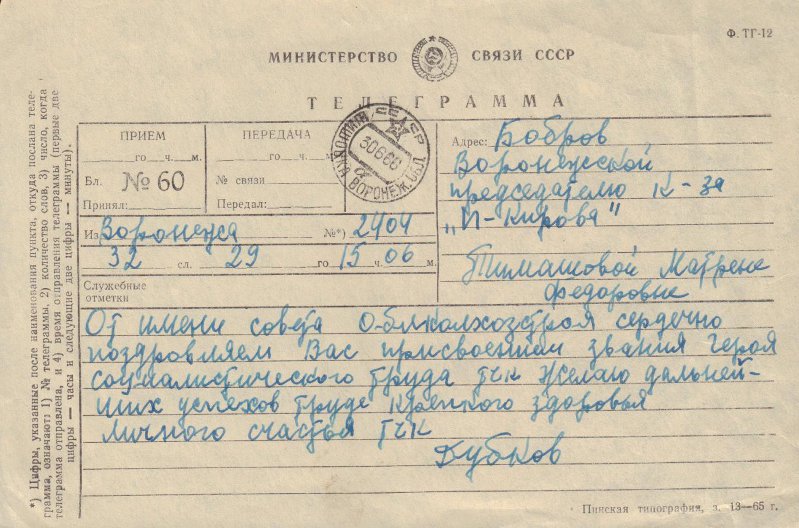 Ф. ТГ-12
МИНИСТЕРСТВО СВЯЗИ СССР
ТЕЛЕГРАММА
ПРИЕМ
го ч. м.
Бл. № 60
Принял:
ПЕРЕДАЧА
го ч. м.
№ связи
Передал:
ВОРОНЕЖ. ОБЛ.
Адрес: Бобров
Воронежской
председателю к-за
"И-Кирова"
Тимашовой Матрене
Федоровне
Из Воронежа №*) 2404
32 сл. 29 го 15 ч. 06 м.
Служебные
отметки
От имени совета Облколхозстроя сердечно
поздравляем Вас присвоением звания героя
социалистического труда тчк Желаю дальней-
ших успехов труде крепкого здоровья
личного счастья тчк
Бубков
Пинская типография, з. 13—65 г.
*) Цифры, указанные после наименования пункта, откуда послана теле-
грамма, означают: 1) № телеграммы, 2) количество слов, 3) число, когда
телеграмма отправлена, и 4) время отправления телеграммы (первые две
цифры — часы и следующие две цифры — минуты).